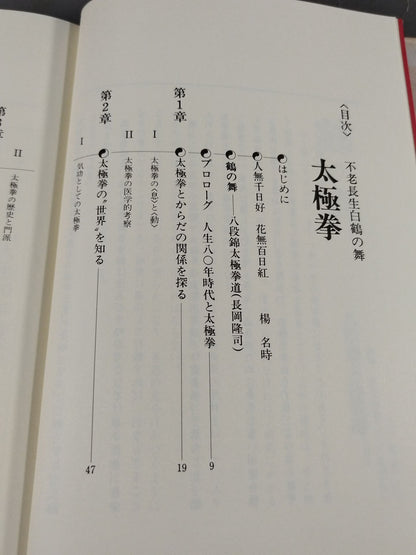 〈目次〉
不老長生白鶴の舞
太極拳
はじめに
人無千日好 花無百日紅 楊名時
鶴の舞――八段錦太極拳道(長岡隆司)
プロローグ 人生八〇年時代と太極拳 9
第1章
太極拳とからだの関係を探る 19
I 太極拳の〈息〉と〈動〉
II 太極拳の医学的考察
第2章
太極拳の“世界”を知る 47
I 気功としての太極拳
II 太極拳の歴史と門派